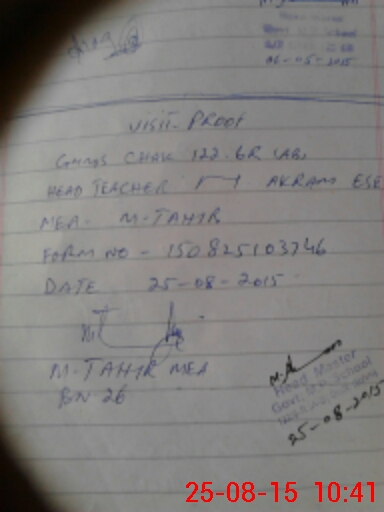 06-05-2015
VISIT-PROOF
GHMS CHAK 122.6R (AB)
HEAD TEACHER M AKRAM ESE
MEA- M-TAHIR
FORM NO - 150825103746
DATE 25-08-2015
M-TAHIR MEA
BN-26
Head Master
Govt. School
25-08-2015
25-08-15 10:41